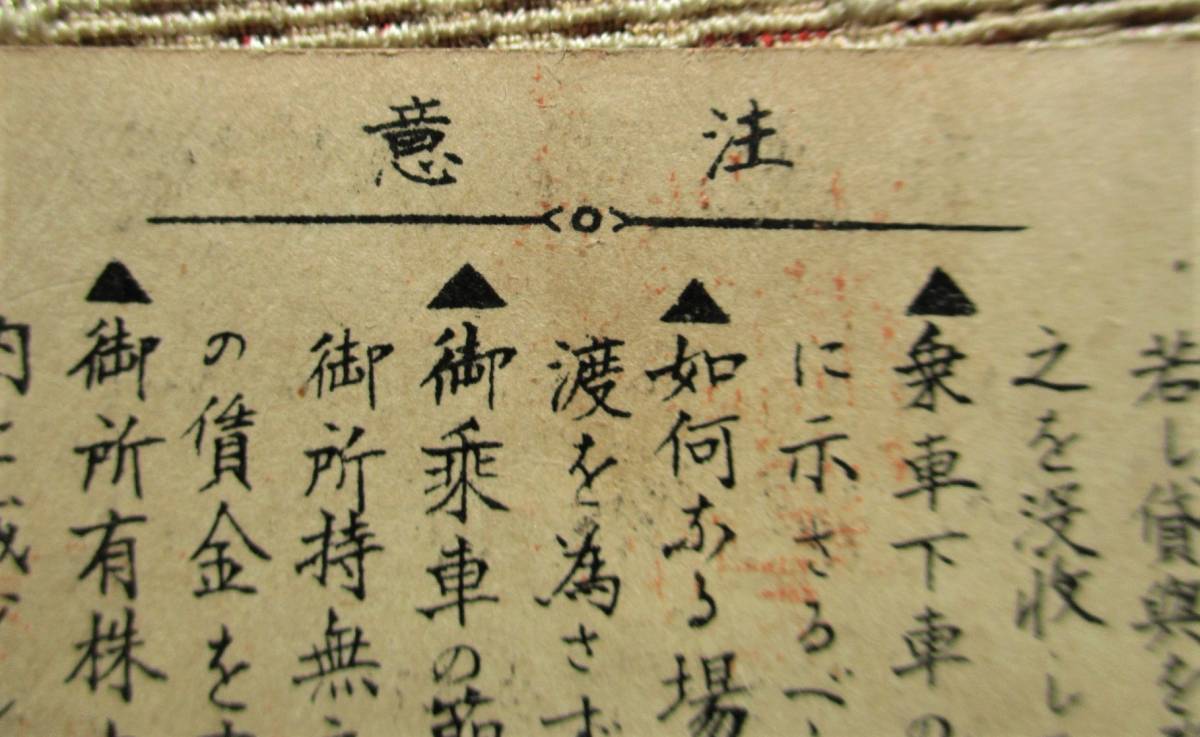 注意
若し貸與を
之を没收し
▲乗車下車の
に示さるべ
▲如何なる場
渡を為さず
▲御乘車の節
御所持無
の賃金を
▲御所有株
内に